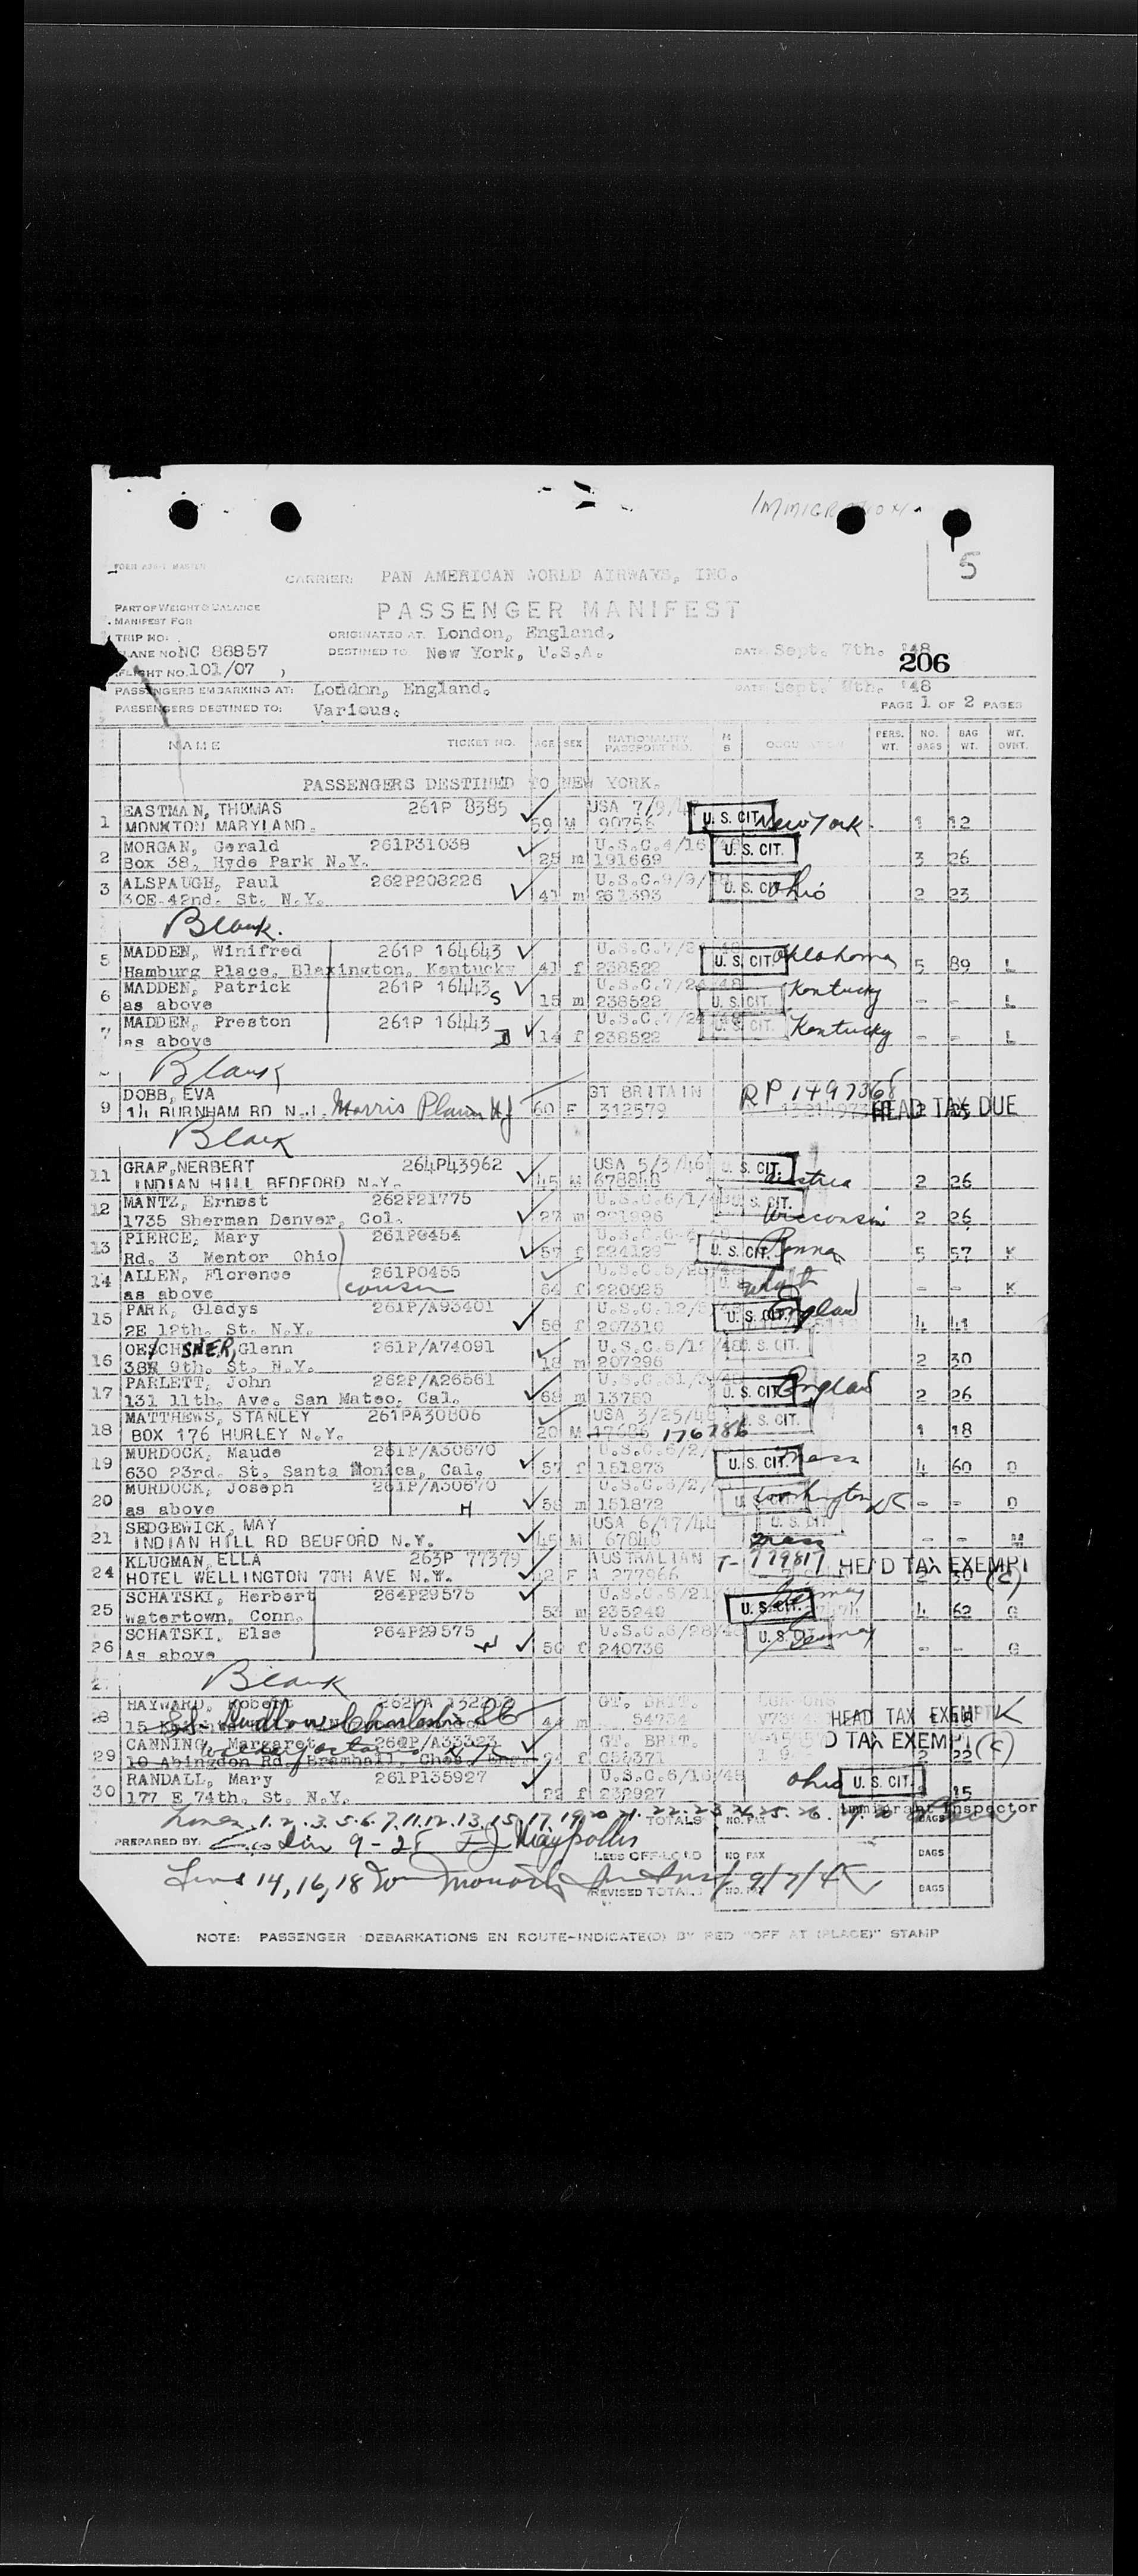 IMMIGRATION
5
FORM
CARRIER: PAN AMERICAN WORLD AIRWAYS, INC.
PASSENGER MANIFEST
PART OF WEIGHT & BALANCE
MANIFEST FOR
TRIP NO: ORIGINATED AT London, England.
PLANE NO. NC 88857 DESTINED TO New York, U.S.A. DATE Sept. 7th. '48
FLIGHT NO. 101/07 ) 206
PASSENGERS EMBARKING AT: London, England. DATE Sept. 8th. '48
PASSENGERS DESTINED TO: Various. PAGE 1 OF 2 PAGES
NAME TICKET NO. AGE SEX NATIONALITY PASSPORT NO. M S OCCUPATION PERS. WT. NO. BAGS BAG WT. WT. OVRT.
PASSENGERS DESTINED TO NEW YORK.
1 EASTMAN, THOMAS 261P 8385 USA 7/9/4
MONKTON MARYLAND. 59 M 90756 U. S. CIT. New York 1 12
2 MORGAN, Gerald 261P31038 U.S.C.4/16/48
Box 38, Hyde Park N.Y. 25 m 191669 U. S. CIT. 3 26
3 ALSPAUGH, Paul 262P208226 U.S.C.9/9/
30E 42nd. St. N.Y. 41 m 261393 U. S. CIT Ohio 2 23
Blank.
5 MADDEN, Winifred 261P 164643 U.S.C.7/24/48
Hamburg Place, Blexington, Kentucky 41 f 238522 U. S. CIT. Oklahoma 5 89 L
6 MADDEN, Patrick 261P 16443 S U.S.C.7/24/48
as above 15 m 238522 U. S. CIT. Kentucky - - L
7 MADDEN, Preston 261P 16443 U.S.C.7/24/48
as above 14 f 238522 U. S. CIT. Kentucky - - L
Blank
9 DOBB, EVA GT BRITAIN RP 1497368
14 BURNHAM RD N.J. Morris Plains NJ 60 F 312579 HEAD TAX DUE 2 25
Blank
11 GRAF, NERBERT 264P43962 USA 5/3/46 U. S. CIT.
INDIAN HILL BEDFORD N.Y. 45 M 678848 Austria 2 26
12 MANTZ, Ernest 262P21775 U.S.C.6/1/48 U. S. CIT.
1735 Sherman Denver, Col. 27 m 221996 Wisconsin 2 26
13 PIERCE, Mary 261P0454
Rd. 3 Mentor Ohio 57 f 224129 U. S. CIT. Penna 5 57 K
14 ALLEN, Florence 261P0455 U.S.C.5/28/48
as above cousin 64 f 220025 Utah - - K
15 PARK, Gladys 261P/A93401 U.S.C.12/8
2E 12th. St. N.Y. 56 f 207310 U. S. CIT. England 4 41
16 OESCHSNER, Glenn 261P/A74091 U.S.C.5/12/48 U. S. CIT.
38W 9th. St. N.Y. 18 m 207296 2 30
17 PARLETT, John 262P/A26561
131 11th. Ave. San Mateo, Cal. 68 m 13750 U. S. CIT. England 2 26
18 MATTHEWS, STANLEY 261PA30806 USA 3/25/48 U. S. CIT.
BOX 176 HURLEY N.Y. 20 M 17686 176786 1 18
19 MURDOCK, Maude 261P/A30670 U.S.C.6/2/
630 23rd. St. Santa Monica, Cal. 57 f 151873 U. S. CIT. Mass 4 60 D
20 MURDOCK, Joseph 261P/A30670 U.S.C.6/2/
as above H 58 m 151872 U. S. CIT. Washington DC - - D
21 SEDGEWICK, MAY USA 6/17/46 U. S. CIT.
INDIAN HILL RD BEDFORD N.Y. 45 M 67848 Mass - - M
24 KLUGMAN, ELLA 263P 77379 AUSTRALIAN T-779817 HEAD TAX EXEMPT
HOTEL WELLINGTON 7TH AVE N.Y. 42 F A 277966 2 30 (C)
25 SCHATSKI, Herbert 264P29575 U.S.C.5/21/48 Germany
Watertown, Conn. 53 m 235240 U. S. CIT. 4 62 G
26 SCHATSKI, Else 264P29575 W U.S.C.6/28/48
As above 50 f 240736 U. S. CIT. Germany - - G
Blank
28 HAYWARD, Robert GT. BRIT. HEAD TAX EXEMPT
Ludlow Charleston 44 m 54754
29 CANNING, Margaret 264P/A33323 GT. BRIT. D TAX EXEMPT (C)
10 Abingdon Rd, Bramhall, Ches. 24 f 056371 2 22
30 RANDALL, Mary 261P135927 U.S.C.6/16/48 Ohio U. S. CIT.
177 E 74th. St. N.Y. 22 f 232927 15
Lines 1.2.3.5.6.7.11.12.13.15.17.19.20.21.22.23.24.25.26. TOTALS NO. PAX Immigrant Inspector BAGS
PREPARED BY: LESS OFF-LOAD NO PAX BAGS
Lines 14, 16, 18 9/7/48 REVISED TOTAL: NO. PAX BAGS
NOTE: PASSENGER DEBARKATIONS EN ROUTE-INDICATE(D) BY RED "OFF AT (PLACE)" STAMP